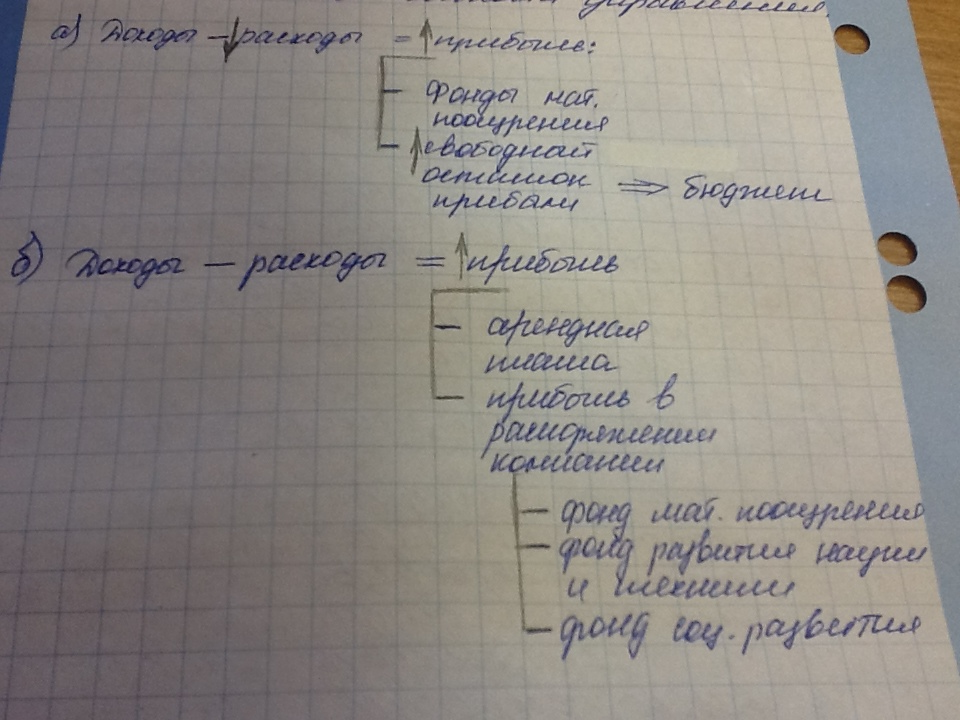 управления.
а) Доходы – ↓расходы = ↑прибыль:
– Фонды мат.
поощрения
– ↑свободный
остаток
прибыли ⇒ бюджет
б) Доходы – расходы = ↑прибыль
– арендная
плата
– прибыль в
распоряжении
компании
– фонд мат. поощрения
– фонд развития науки
и техники
– фонд соц. развития